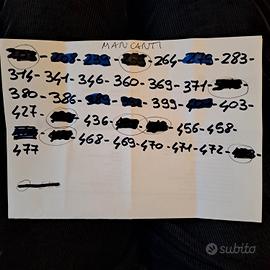 MANCANTI
264 - 283 -
314 - 341 - 346 - 360 - 369 - 371 -
380 - 386 - 399 - 403 -
427 - 436 - 456 - 458 -
468 - 469 - 470 - 471 - 472 -
477
subito